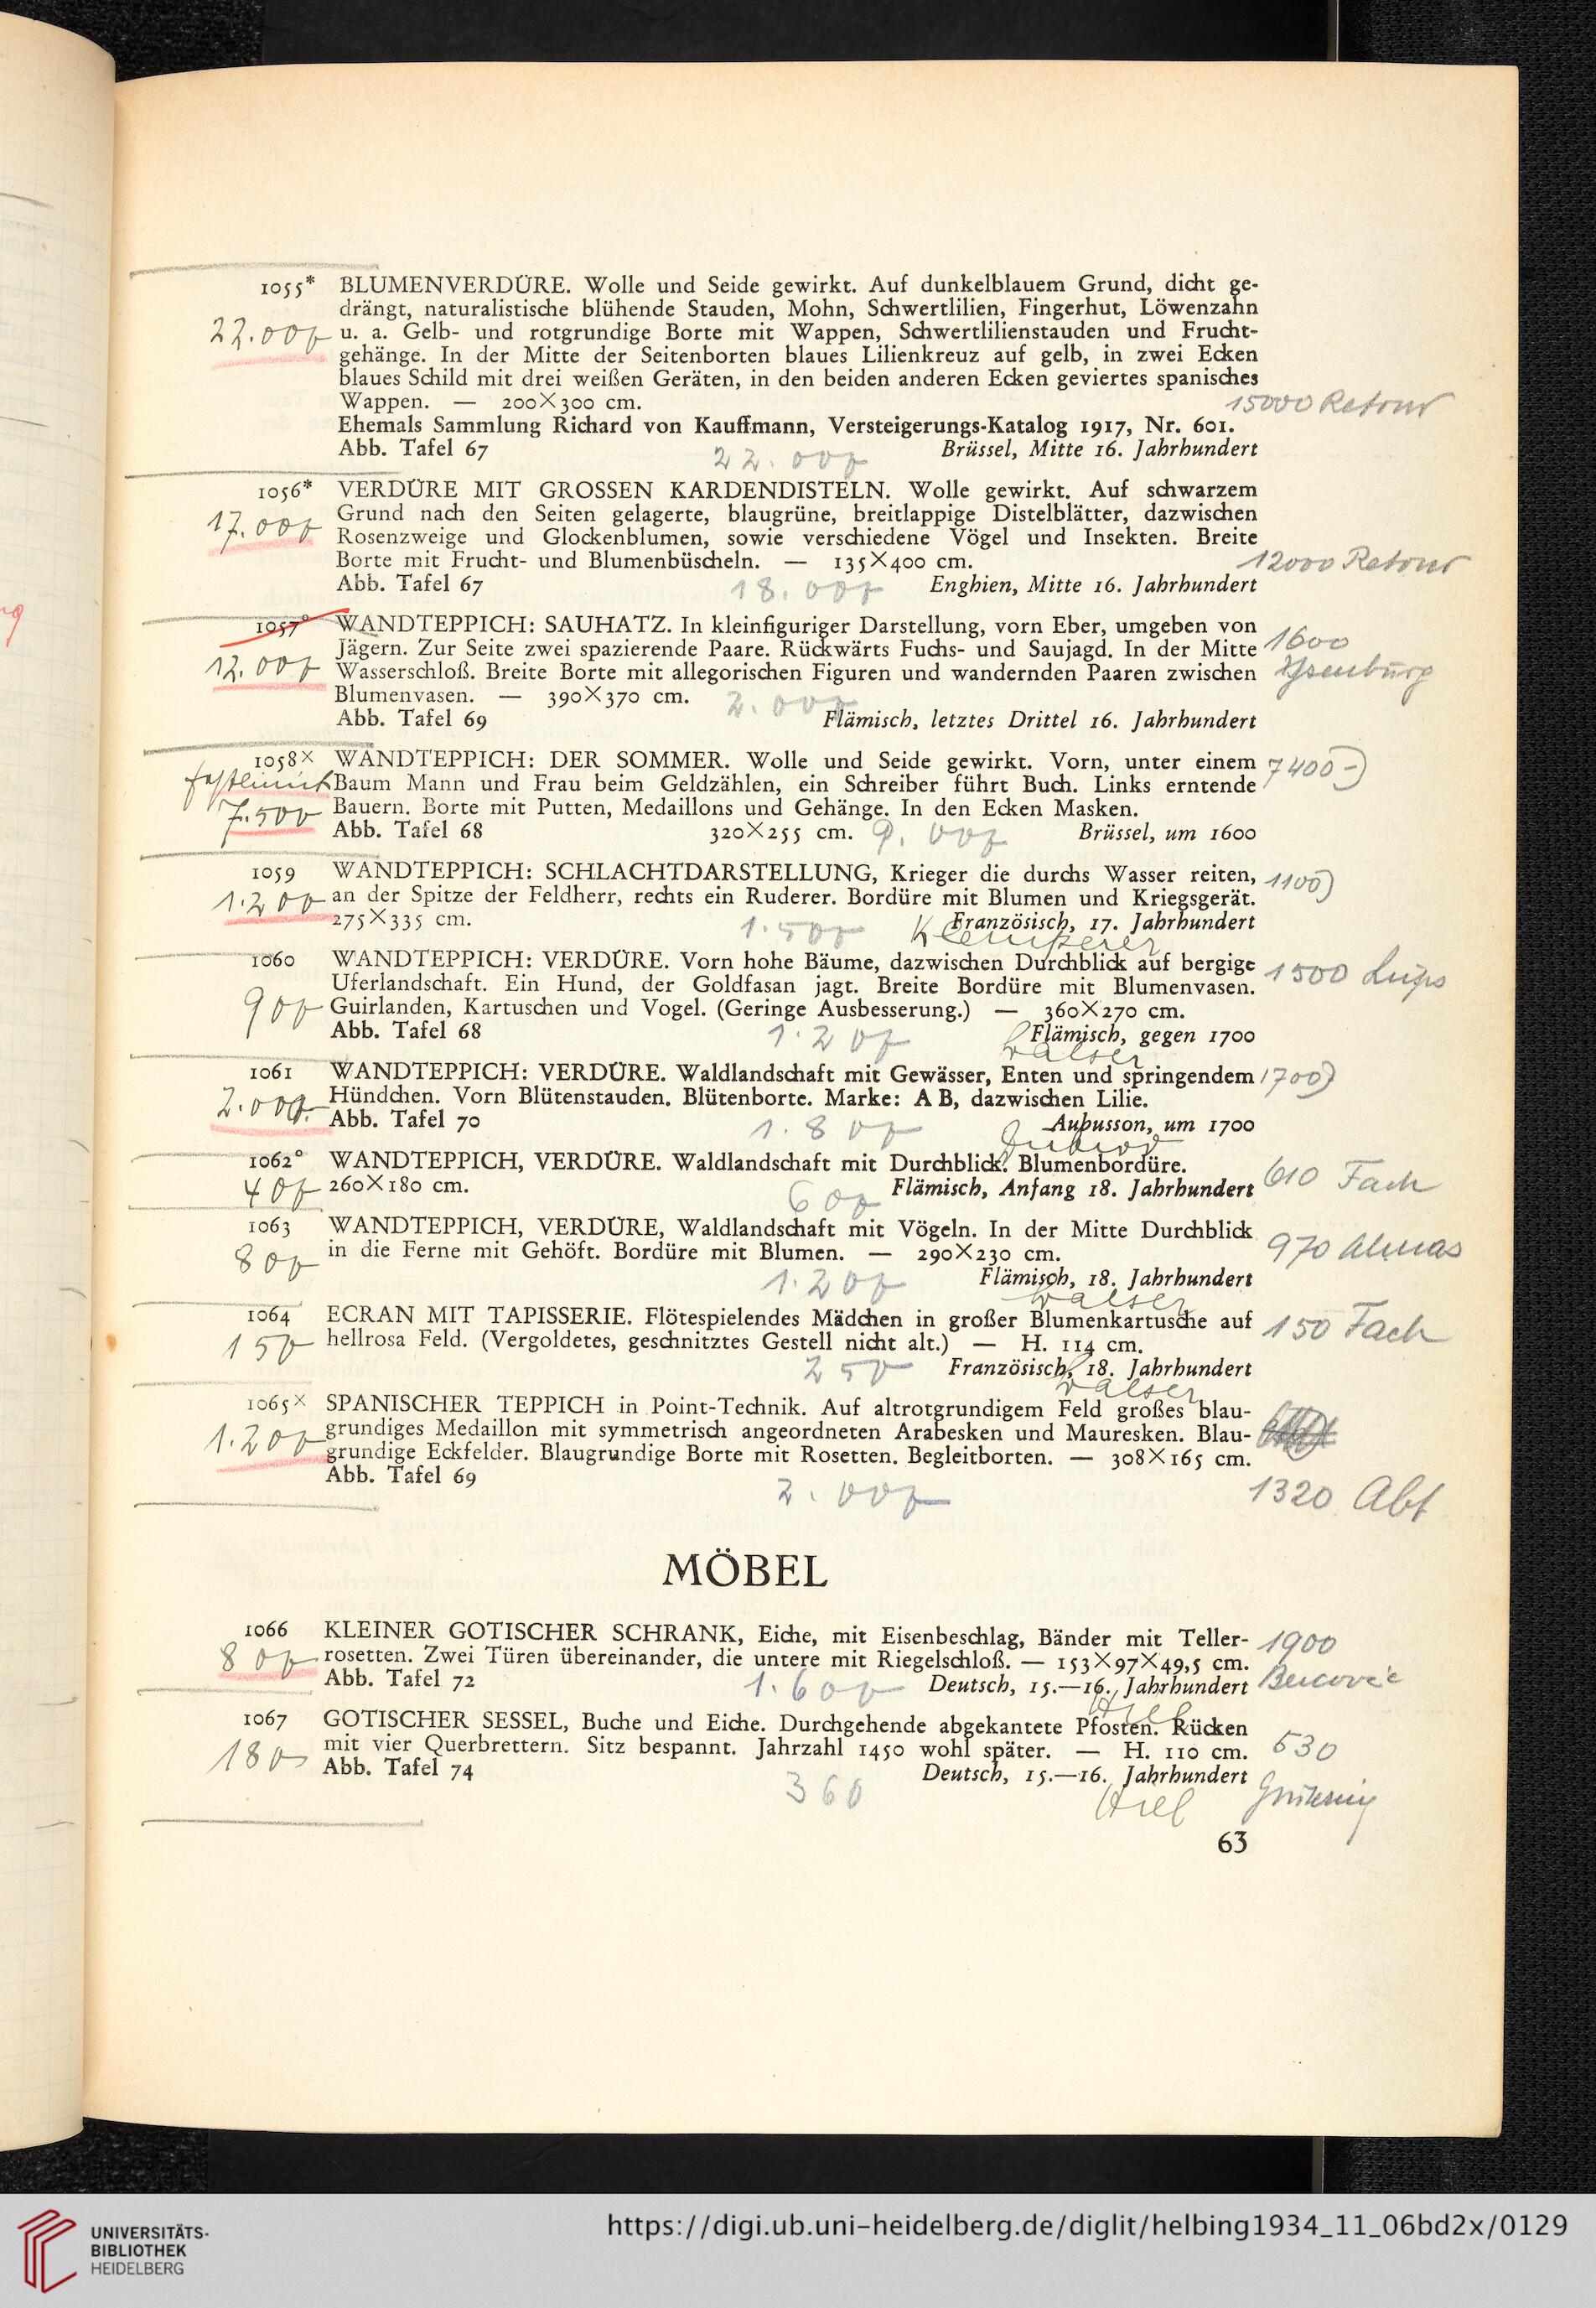 1055* BLUMENVERDÜRE. Wolle und Seide gewirkt. Auf dunkelblauem Grund, dicht ge-
drängt, naturalistische blühende Stauden, Mohn, Schwertlilien, Fingerhut, Löwenzahn
22.00 u. a. Gelb- und rotgrundige Borte mit Wappen, Schwertlilienstauden und Frucht-
gehänge. In der Mitte der Seitenborten blaues Lilienkreuz auf gelb, in zwei Ecken
blaues Schild mit drei weißen Geräten, in den beiden anderen Ecken geviertes spanisches
Wappen. — 200×300 cm. 15000 Retour
Ehemals Sammlung Richard von Kauffmann, Versteigerungs-Katalog 1917, Nr. 601.
Abb. Tafel 67 22.00 Brüssel, Mitte 16. Jahrhundert
1056* VERDÜRE MIT GROSSEN KARDENDISTELN. Wolle gewirkt. Auf schwarzem
17.00 Grund nach den Seiten gelagerte, blaugrüne, breitlappige Distelblätter, dazwischen
Rosenzweige und Glockenblumen, sowie verschiedene Vögel und Insekten. Breite
Borte mit Frucht- und Blumenbüscheln. — 135×400 cm. 12000 Retour
Abb. Tafel 67 18.00 Enghien, Mitte 16. Jahrhundert
1057° WANDTEPPICH: SAUHATZ. In kleinfiguriger Darstellung, vorn Eber, umgeben von
Jägern. Zur Seite zwei spazierende Paare. Rückwärts Fuchs- und Saujagd. In der Mitte 1600
12.00 Wasserschloß. Breite Borte mit allegorischen Figuren und wandernden Paaren zwischen Ysenburg
Blumenvasen. — 390×370 cm. 2.00
Abb. Tafel 69 Flämisch, letztes Drittel 16. Jahrhundert
1058× WANDTEPPICH: DER SOMMER. Wolle und Seide gewirkt. Vorn, unter einem 7400
Baum Mann und Frau beim Geldzählen, ein Schreiber führt Buch. Links erntende
7.500 Bauern. Borte mit Putten, Medaillons und Gehänge. In den Ecken Masken.
Abb. Tafel 68 320×255 cm. 9.00 Brüssel, um 1600
1059 WANDTEPPICH: SCHLACHTDARSTELLUNG, Krieger die durchs Wasser reiten, 1100
1.20 an der Spitze der Feldherr, rechts ein Ruderer. Bordüre mit Blumen und Kriegsgerät.
275×335 cm. 1.50 Französisch, 17. Jahrhundert
Klemperer
1060 WANDTEPPICH: VERDÜRE. Vorn hohe Bäume, dazwischen Durchblick auf bergige 1500 Lüps
Uferlandschaft. Ein Hund, der Goldfasan jagt. Breite Bordüre mit Blumenvasen.
90 Guirlanden, Kartuschen und Vogel. (Geringe Ausbesserung.) — 360×270 cm.
Abb. Tafel 68 1.20 Flämisch, gegen 1700
Walser
1061 WANDTEPPICH: VERDÜRE. Waldlandschaft mit Gewässer, Enten und springendem 1700
2.00 Hündchen. Vorn Blütenstauden. Blütenborte. Marke: A B, dazwischen Lilie.
Abb. Tafel 70 1.80 Aubusson, um 1700
1062° WANDTEPPICH, VERDÜRE. Waldlandschaft mit Durchblick. Blumenbordüre. 610 Fach
40 260×180 cm. 60 Flämisch, Anfang 18. Jahrhundert
1063 WANDTEPPICH, VERDÜRE, Waldlandschaft mit Vögeln. In der Mitte Durchblick 970 Almas
80 in die Ferne mit Gehöft. Bordüre mit Blumen. — 290×230 cm.
1.20 Flämisch, 18. Jahrhundert
Walser
1064 ECRAN MIT TAPISSERIE. Flötespielendes Mädchen in großer Blumenkartusche auf 150 Fach
15 hellrosa Feld. (Vergoldetes, geschnitztes Gestell nicht alt.) — H. 114 cm.
25 Französisch, 18. Jahrhundert
Walser
1065× SPANISCHER TEPPICH in Point-Technik. Auf altrotgrundigem Feld großes blau-
1.20 grundiges Medaillon mit symmetrisch angeordneten Arabesken und Mauresken. Blau-
grundige Eckfelder. Blaugrundige Borte mit Rosetten. Begleitborten. — 308×165 cm.
Abb. Tafel 69 2.00 1320 Abt
MÖBEL
1066 KLEINER GOTISCHER SCHRANK, Eiche, mit Eisenbeschlag, Bänder mit Teller- 1900
80 rosetten. Zwei Türen übereinander, die untere mit Riegelschloß. — 153×97×49,5 cm.
Abb. Tafel 72 1.60 Deutsch, 15.—16. Jahrhundert
Hiel
1067 GOTISCHER SESSEL, Buche und Eiche. Durchgehende abgekantete Pfosten. Rücken
180 mit vier Querbrettern. Sitz bespannt. Jahrzahl 1450 wohl später. — H. 110 cm. 530
Abb. Tafel 74 360 Deutsch, 15.—16. Jahrhundert
Hiel
63
UNIVERSITÄTS-
BIBLIOTHEK
HEIDELBERG
https://digi.ub.uni-heidelberg.de/diglit/helbing1934_11_06bd2x/0129